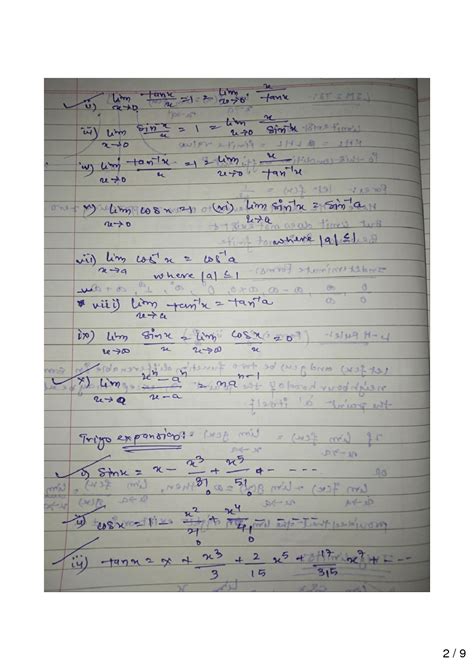 ii) lim x→0 tanx/x = 1 = lim x→0 x/tanx
iii) lim x→0 sin⁻¹x/x = 1 = lim x→0 x/sin⁻¹x
iv) lim x→0 tan⁻¹x/x = 1 = lim x→0 x/tan⁻¹x
v) lim x→0 cosx = 1 (vi) lim x→a sin⁻¹x = sin⁻¹a
where |a| ≤ 1
vii) lim x→a cos⁻¹x = cos⁻¹a
where |a| ≤ 1
* viii) lim x→a tan⁻¹x = tan⁻¹a
ix) lim x→∞ sinx/x = lim x→∞ cosx/x = 0
x) lim x→a xⁿ-aⁿ/x-a = naⁿ⁻¹
Trigo expansion:
i) sinx = x - x³/3! + x⁵/5! + - - - -
ii) cosx = 1 - x²/2! + x⁴/4! - - - -
iii) tanx = x + x³/3 + 2/15 x⁵ + 17/315 x⁷ + - - -
2 / 9